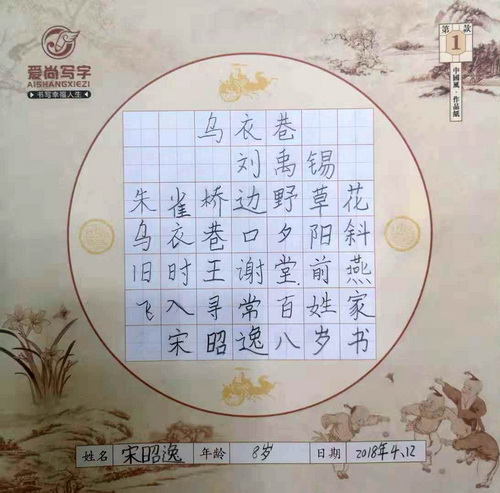 爱尚写字
AISHANGXIEZI
书写幸福人生
第1款
中國風·作品紙
乌衣巷
刘禹锡
朱雀桥边野草花
乌衣巷口夕阳斜
旧时王谢堂前燕
飞入寻常百姓家
宋昭逸八岁书
姓名 宋昭逸 年龄 8岁 日期 2018年4、12